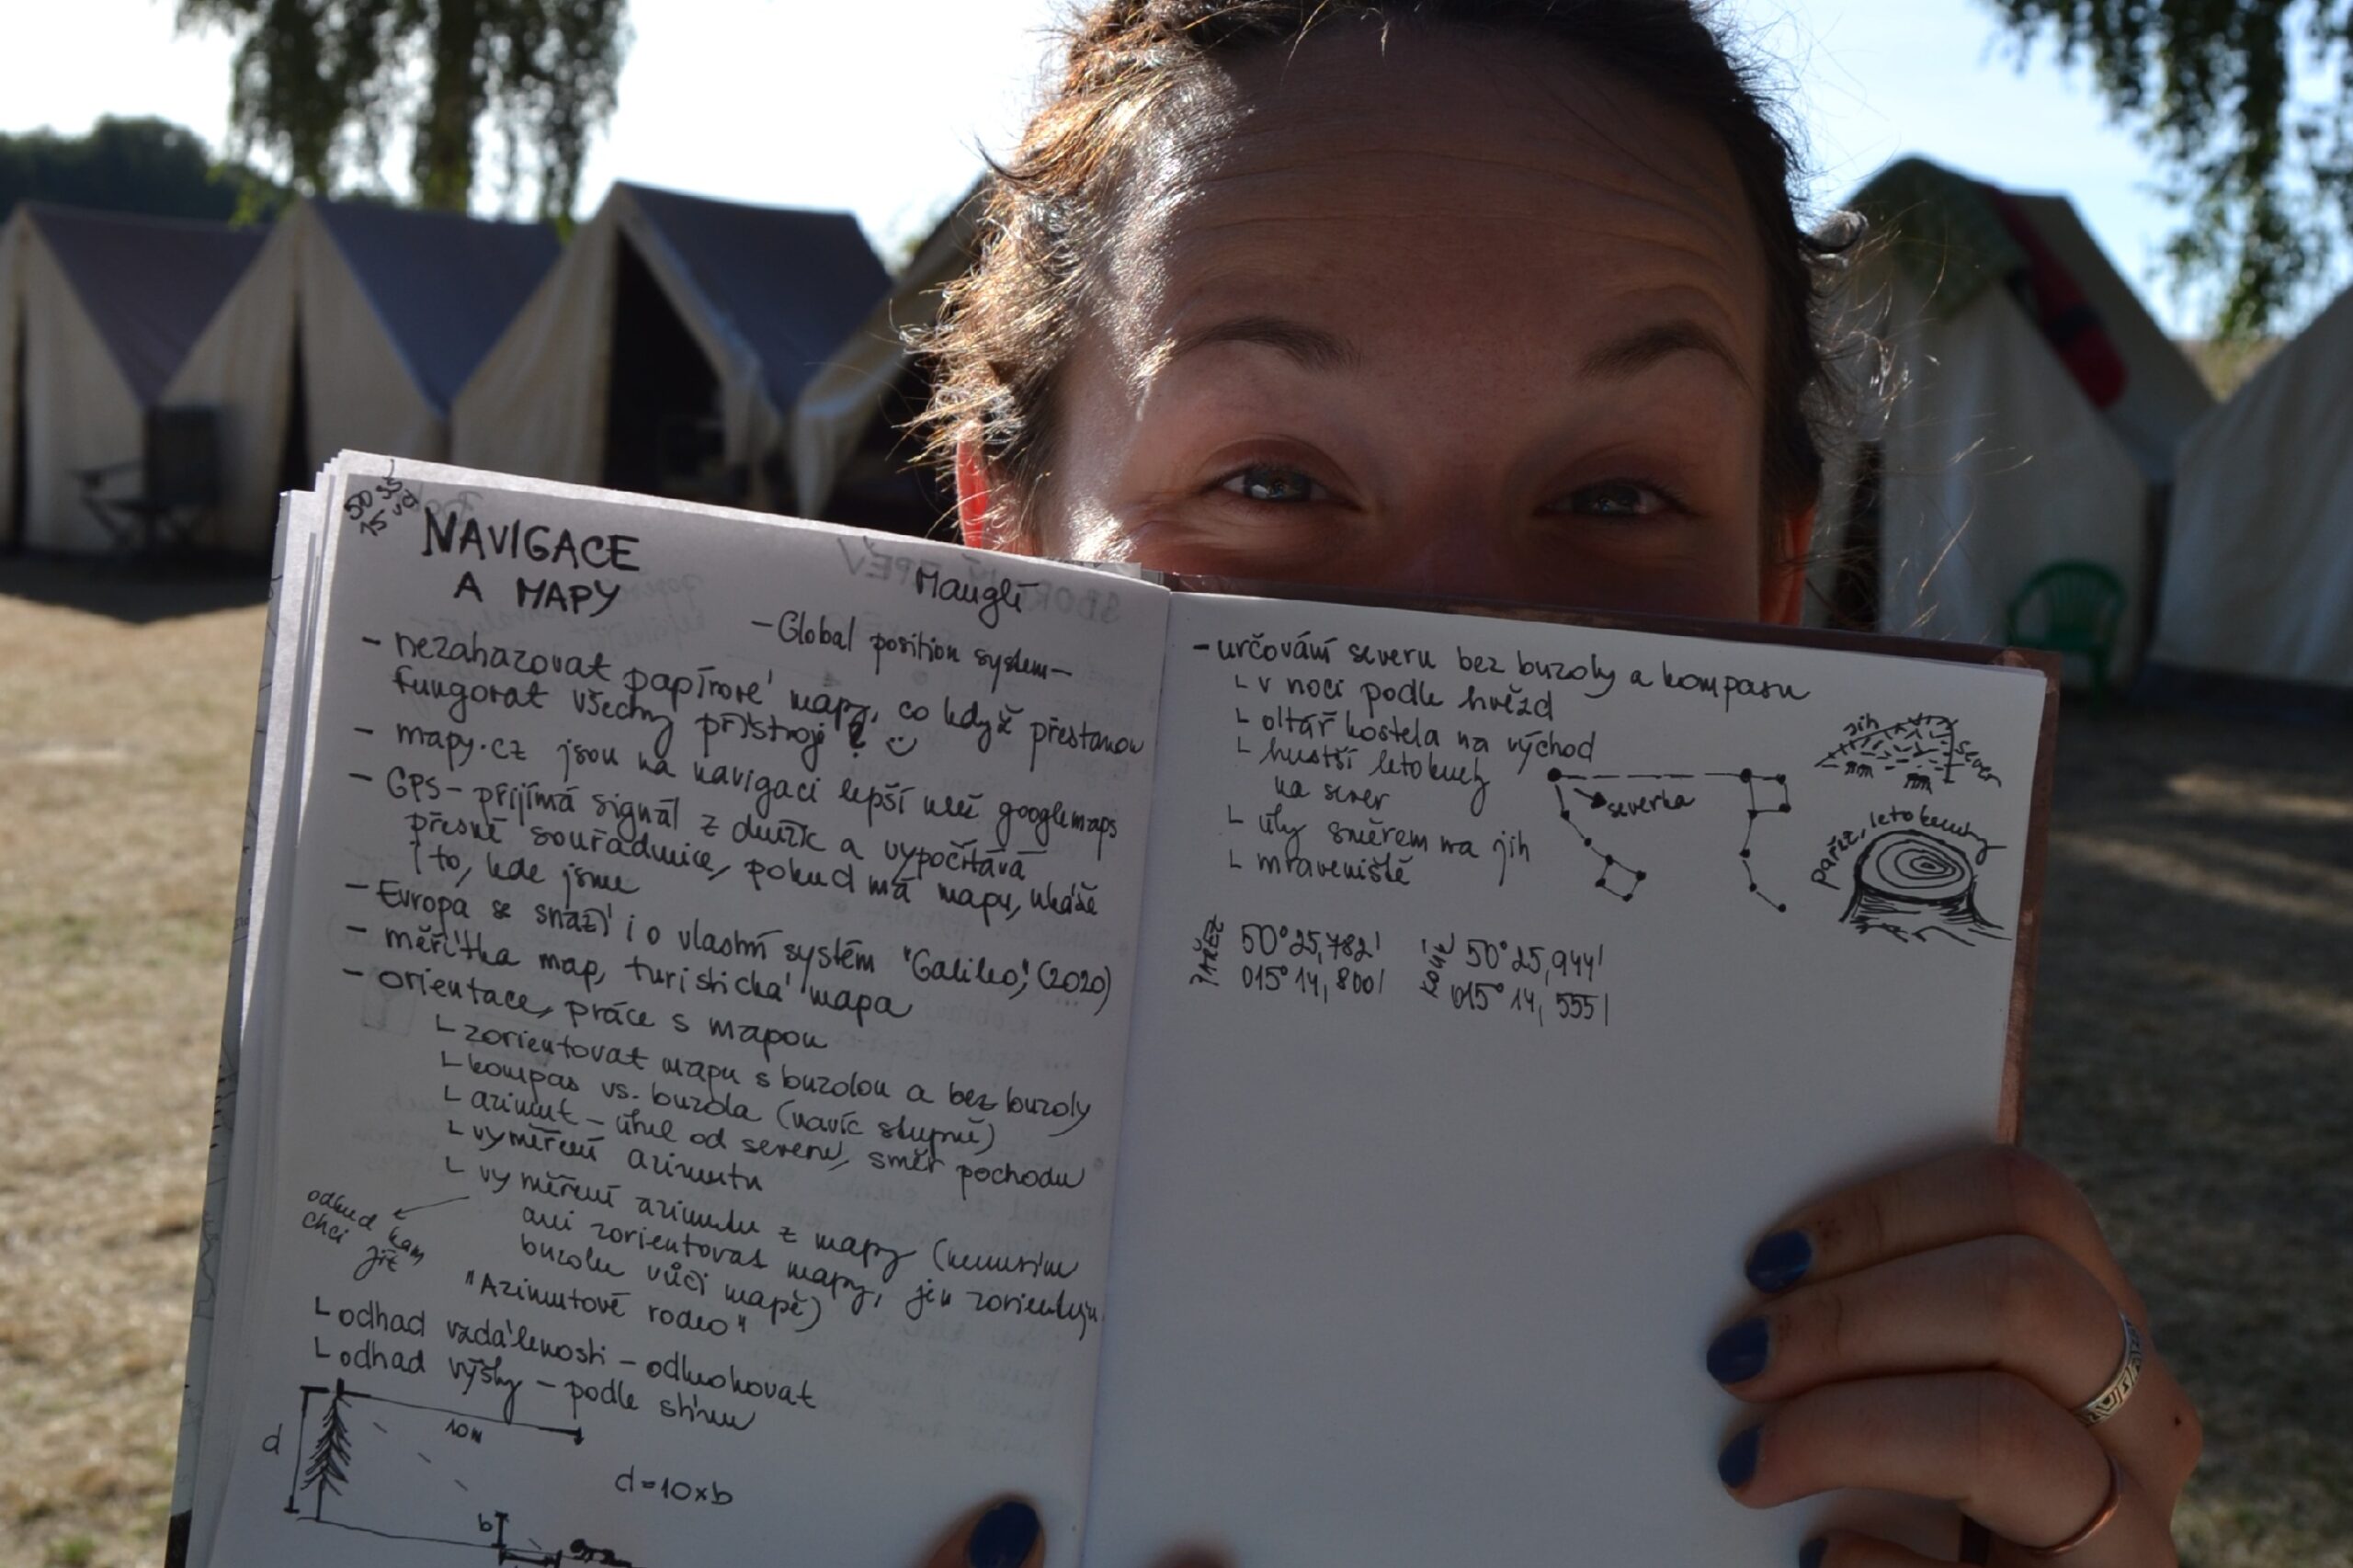 NAVIGACE
A MAPY
Mauglí
- Global position system -
- nezahazovat papírové mapy, co když přestanou
fungovat všechny přístroje? :)
- mapy.cz jsou na navigaci lepší než googlemaps
- GPS - přijímá signál z družic a vypočítává
přesné souřadnice, pokud má mapu, ukáže
i to, kde jsme
- Evropa se snaží i o vlastní systém "Galileo", (2020)
- měřítka map, turistická mapa
- orientace, práce s mapou
└ zorientovat mapu s buzolou a bez buzoly
└ kompas vs. buzola (navíc stupně)
└ azimut - úhel od severu, směr pochodu
└ vyměření azimutu
└ vyměření azimutu z mapy (nemusím
ani zorientovat mapy, jen zorientuju
buzolu vůči mapě)
odkud kam
chci jít
"Azimutové rodeo"
└ odhad vzdálenosti - odkrokovat
└ odhad výšky - podle stínu
d
10m
b
d=10×b
- určování severu bez buzoly a kompasu
└ v noci podle hvězd
└ oltář kostela na východ
└ hustší letokruhy
na sever
└ úly směrem na jih
└ mraveniště
severka
jih
sever
pařez, letokruhy
PAŘEZ
50°25,782'
015°14,800'
50°25,944'
015°14,555'